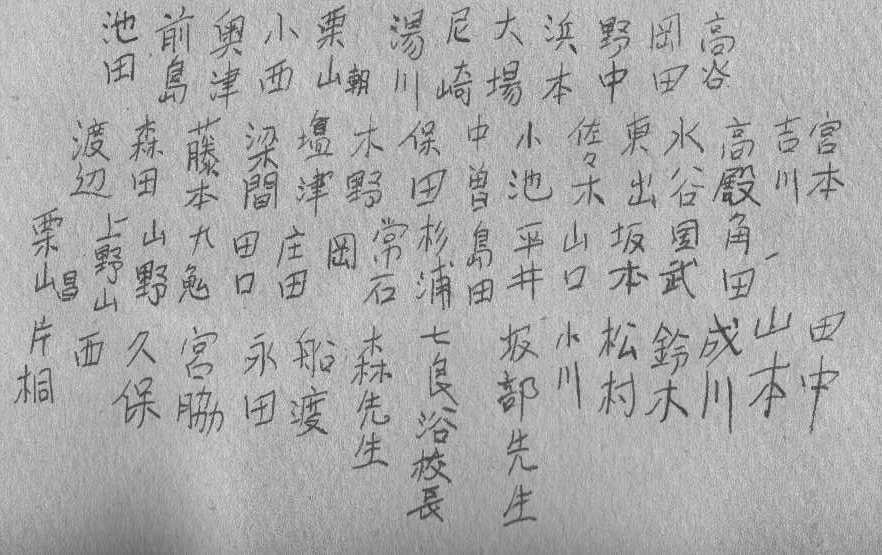 高谷 岡田 野中 浜本 大場 尼崎 湯川 栗山朝 小西 奥津 前島 池田
宮本 吉川 高殿 水谷 東出 佐々木 小池 中曽 保田 木野 塩津 梁間 藤本 森田 渡辺
角田 国武 坂本 山口 平井 島田 杉浦 常石 岡 庄田 田口 九鬼 山野 上野山 栗山昌
田中 山本 成川 鈴木 松村 小川 坂部先生 七良浴校長 森先生 船渡 永田 宮脇 久保 西 片桐